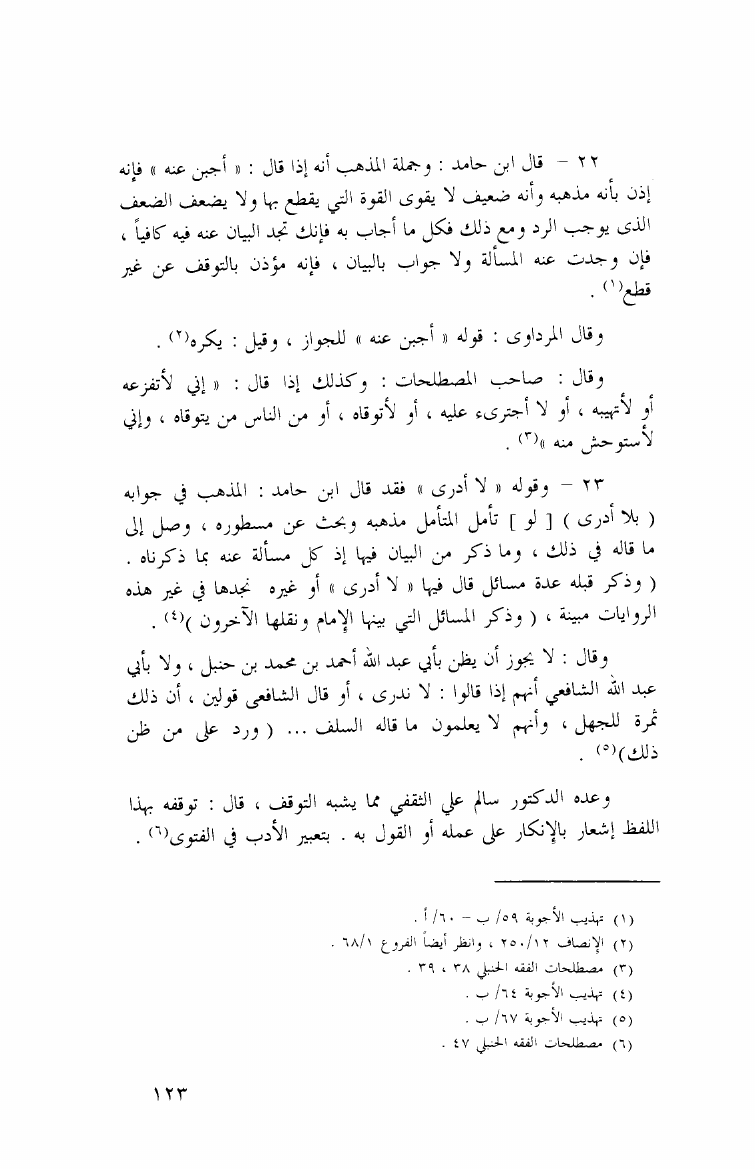 ٢٢ – قال ابن حامد : وجملة المذهب أنه إذا قال : « أجبن عنه » فإنه
إذن بأنه مذهبه وأنه ضعيف لا يقوى القوة التي يقطع بها ولا يضعف الضعف
الذى يوجب الرد ومع ذلك فكل ما أجاب به فإنك تجد البيان عنه فيه كافياً ،
فإن وجدت عنه المسألة ولا جواب بالبيان ، فإنه مؤذن بالتوقف عن غير
قطع(١) .
وقال المرداوى : قوله « أجبن عنه » للجواز ، وقيل : يكره(٢) .
وقال : صاحب المصطلحات : وكذلك إذا قال : « إني لأتفزعه
أو لأتهيبه ، أو لا أجترىء عليه ، أو لأتوقاه ، أو من الناس من يتوقاه ، وإني
لأستوحش منه »(٣) .
٢٣ – وقوله « لا أدرى » فقد قال ابن حامد : المذهب في جوابه
( بلا أدرى ) [ لو ] تأمل المتأمل مذهبه وبحث عن مسطوره ، وصل إلى
ما قاله في ذلك ، وما ذكر من البيان فيها إذ كل مسألة عنه بما ذكرناه .
( وذكر قبله عدة مسائل قال فيها « لا أدرى » أو غيره نجدها في غير هذه
الروايات مبينة ، ( وذكر المسائل التي بينها الإمام ونقلها الآخرون )(٤) .
وقال : لا يجوز أن يظن بأبي عبد الله أحمد بن محمد بن حنبل ، ولا بأبي
عبد الله الشافعي أنهم إذا قالوا : لا ندرى ، أو قال الشافعى قولين ، أن ذلك
ثمرة للجهل ، وأنهم لا يعلمون ما قاله السلف ... ( ورد على من ظن
ذلك)(٥) .
وعده الدكتور سالم علي الثقفي مما يشبه التوقف ، قال : توقفه بهذا
اللفظ إشعار بالإنكار على عمله أو القول به . بتعبير الأدب في الفتوى(٦) .
(١) تهذيب الأجوبة ٥٩/ ب – ٦٠/ أ .
(٢) الإنصاف ٢٥٠/١٢ ، وانظر أيضاً الفروع ٦٨/١ .
(٣) مصطلحات الفقه الحنبلي ٣٨ ، ٣٩ .
(٤) تهذيب الأجوبة ٦٤/ ب .
(٥) تهذيب الأجوبة ٦٧/ ب .
(٦) مصطلحات الفقه الحنبلي ٤٧ .
١٢٣